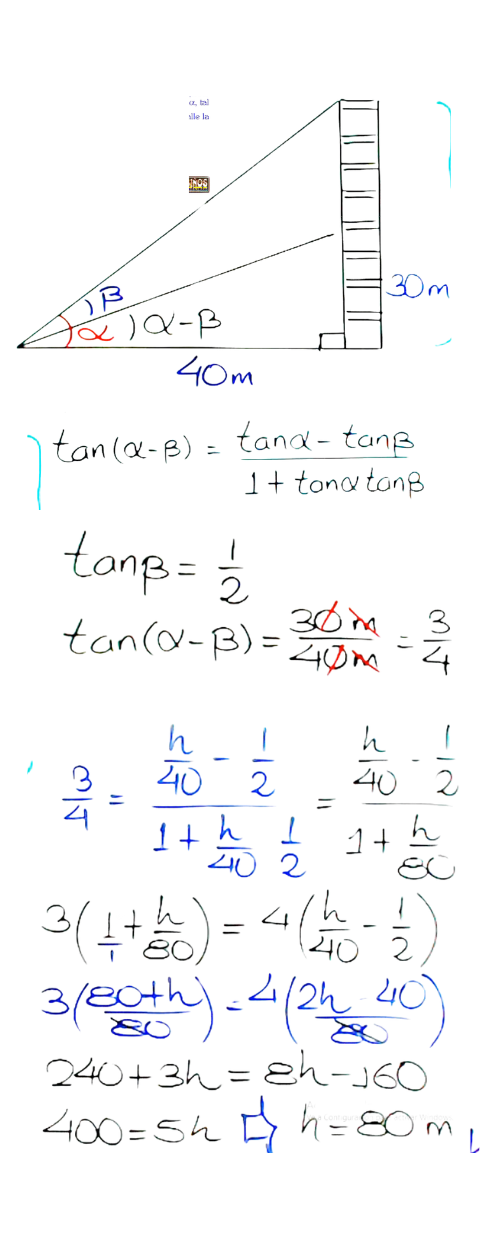 α, tal
lle la
β
α
α-β
30m
40m
tan(α-β) = (tanα - tanβ)/(1 + tanα tanβ)
tanβ = 1/2
tan(α-β) = 30 m/40 m = 3/4
3/4 = (h/40 - 1/2)/(1 + h/40 1/2) = (h/40 - 1/2)/(1 + h/80)
3(1/1 + h/80) = 4(h/40 - 1/2)
3((80+h)/80) = 4((2h 40)/80)
240 + 3h = 8h - 160
400 = 5h ⇨ h = 80 m